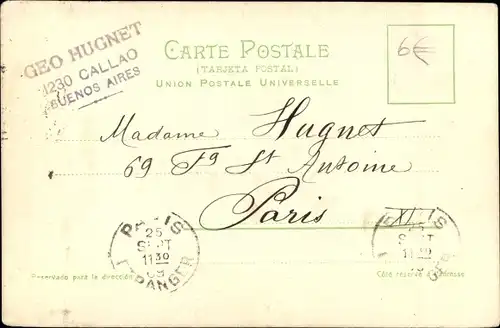 GEO HUGNET
1230 CALLAO
BUENOS AIRES
CARTE POSTALE
(TARJETA POSTAL)
UNION POSTALE UNIVERSELLE
6€
Madame Hugnet
69 Fg St Antoine
Paris
XI
PARIS
25
SEPT
11 30
09
ETRANGER
25
SEPT
11 30
Reservado para la dirección
Côté réservé